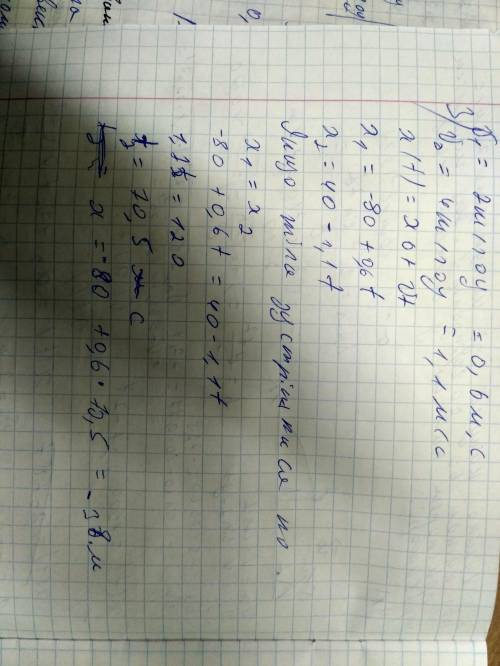 3) V₁ = 2км/год = 0,6 м/с
V₂ = 4км/год = 1,1 м/с
x(t) = x0 + Vt
x₁ = -80 + 0,6t
x₂ = 40 - 1,1t
Якщо тіла зустрілися то
x₁ = x₂
-80 + 0,6t = 40 - 1,1t
= 120
= 70,5 с
x = -80 + 0,6 · 70,5 = -38 м